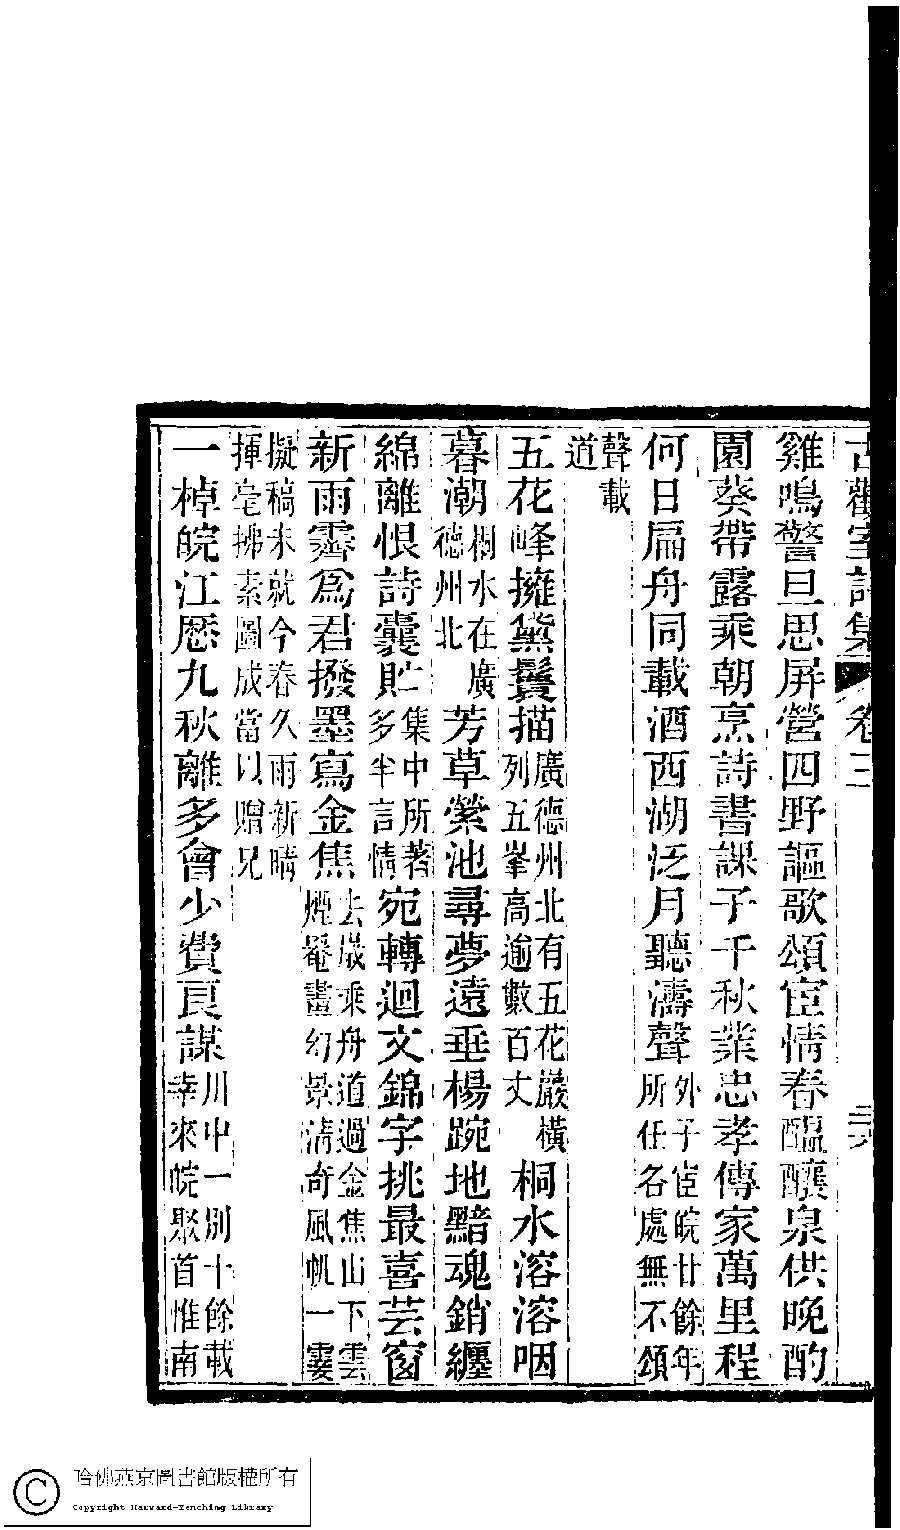 古歡室詩集 卷三 二六
雞鳴警旦思屏營四野謳歌頌宦情春醞釀泉供晚酌
園葵帶露乘朝烹詩書課子千秋業忠孝傳家萬里程
何日扁舟同載酒西湖泛月聽濤聲外子宦皖廿餘年所任名處無不頌
聲載道
五花峰擁黛鬟描廣德州北有五花巖橫列五峯高逾數百丈桐水溶溶咽
暮潮桐水在廣德州北芳草縈池尋夢遠垂楊踠地黯魂銷纏
綿離恨詩囊貯集中所著多半言情宛轉迴文錦字挑最喜芸窗
新雨霽爲君撥墨寫金焦去歲乘舟道過金焦山下雲煙罨畫幻景淸奇風帆一霎
擬稿未就今春久雨新晴揮毫拂素圖成當以贈兄
一棹皖江歷九秋離多會少費良謀川中一別十餘載幸來皖聚首惟南
哈佛燕京圖書館版權所有
Copyright Harvard-Yenching Library